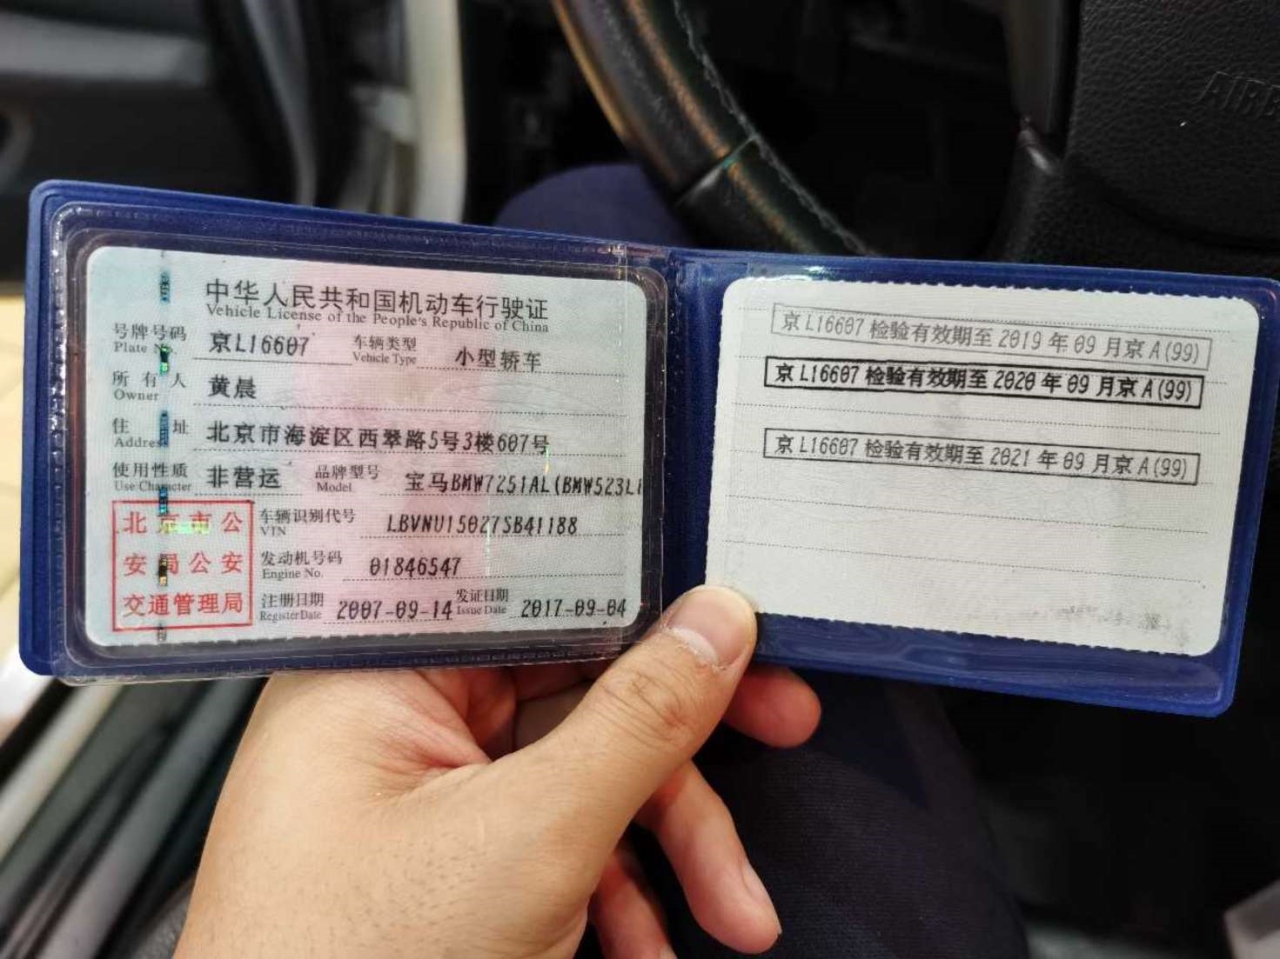 中华人民共和国机动车行驶证
Vehicle License of the People's Republic of China
号牌号码 京L16607 车辆类型 小型轿车
Plate No. Vehicle Type
所有人 黄晨
Owner
住址 北京市海淀区西翠路5号3楼607号
Address
使用性质 非营运 品牌型号 宝马BMW7251AL(BMW523Li
Use Character Model
北京市公
安局公安
交通管理局
车辆识别代号 LBVNU15027SB41188
VIN
发动机号码 01846547
Engine No.
注册日期 2007-09-14 发证日期 2017-09-04
Register Date Issue Date
京L16607检验有效期至2019年09月京A(99)
京L16607检验有效期至2020年09月京A(99)
京L16607检验有效期至2021年09月京A(99)